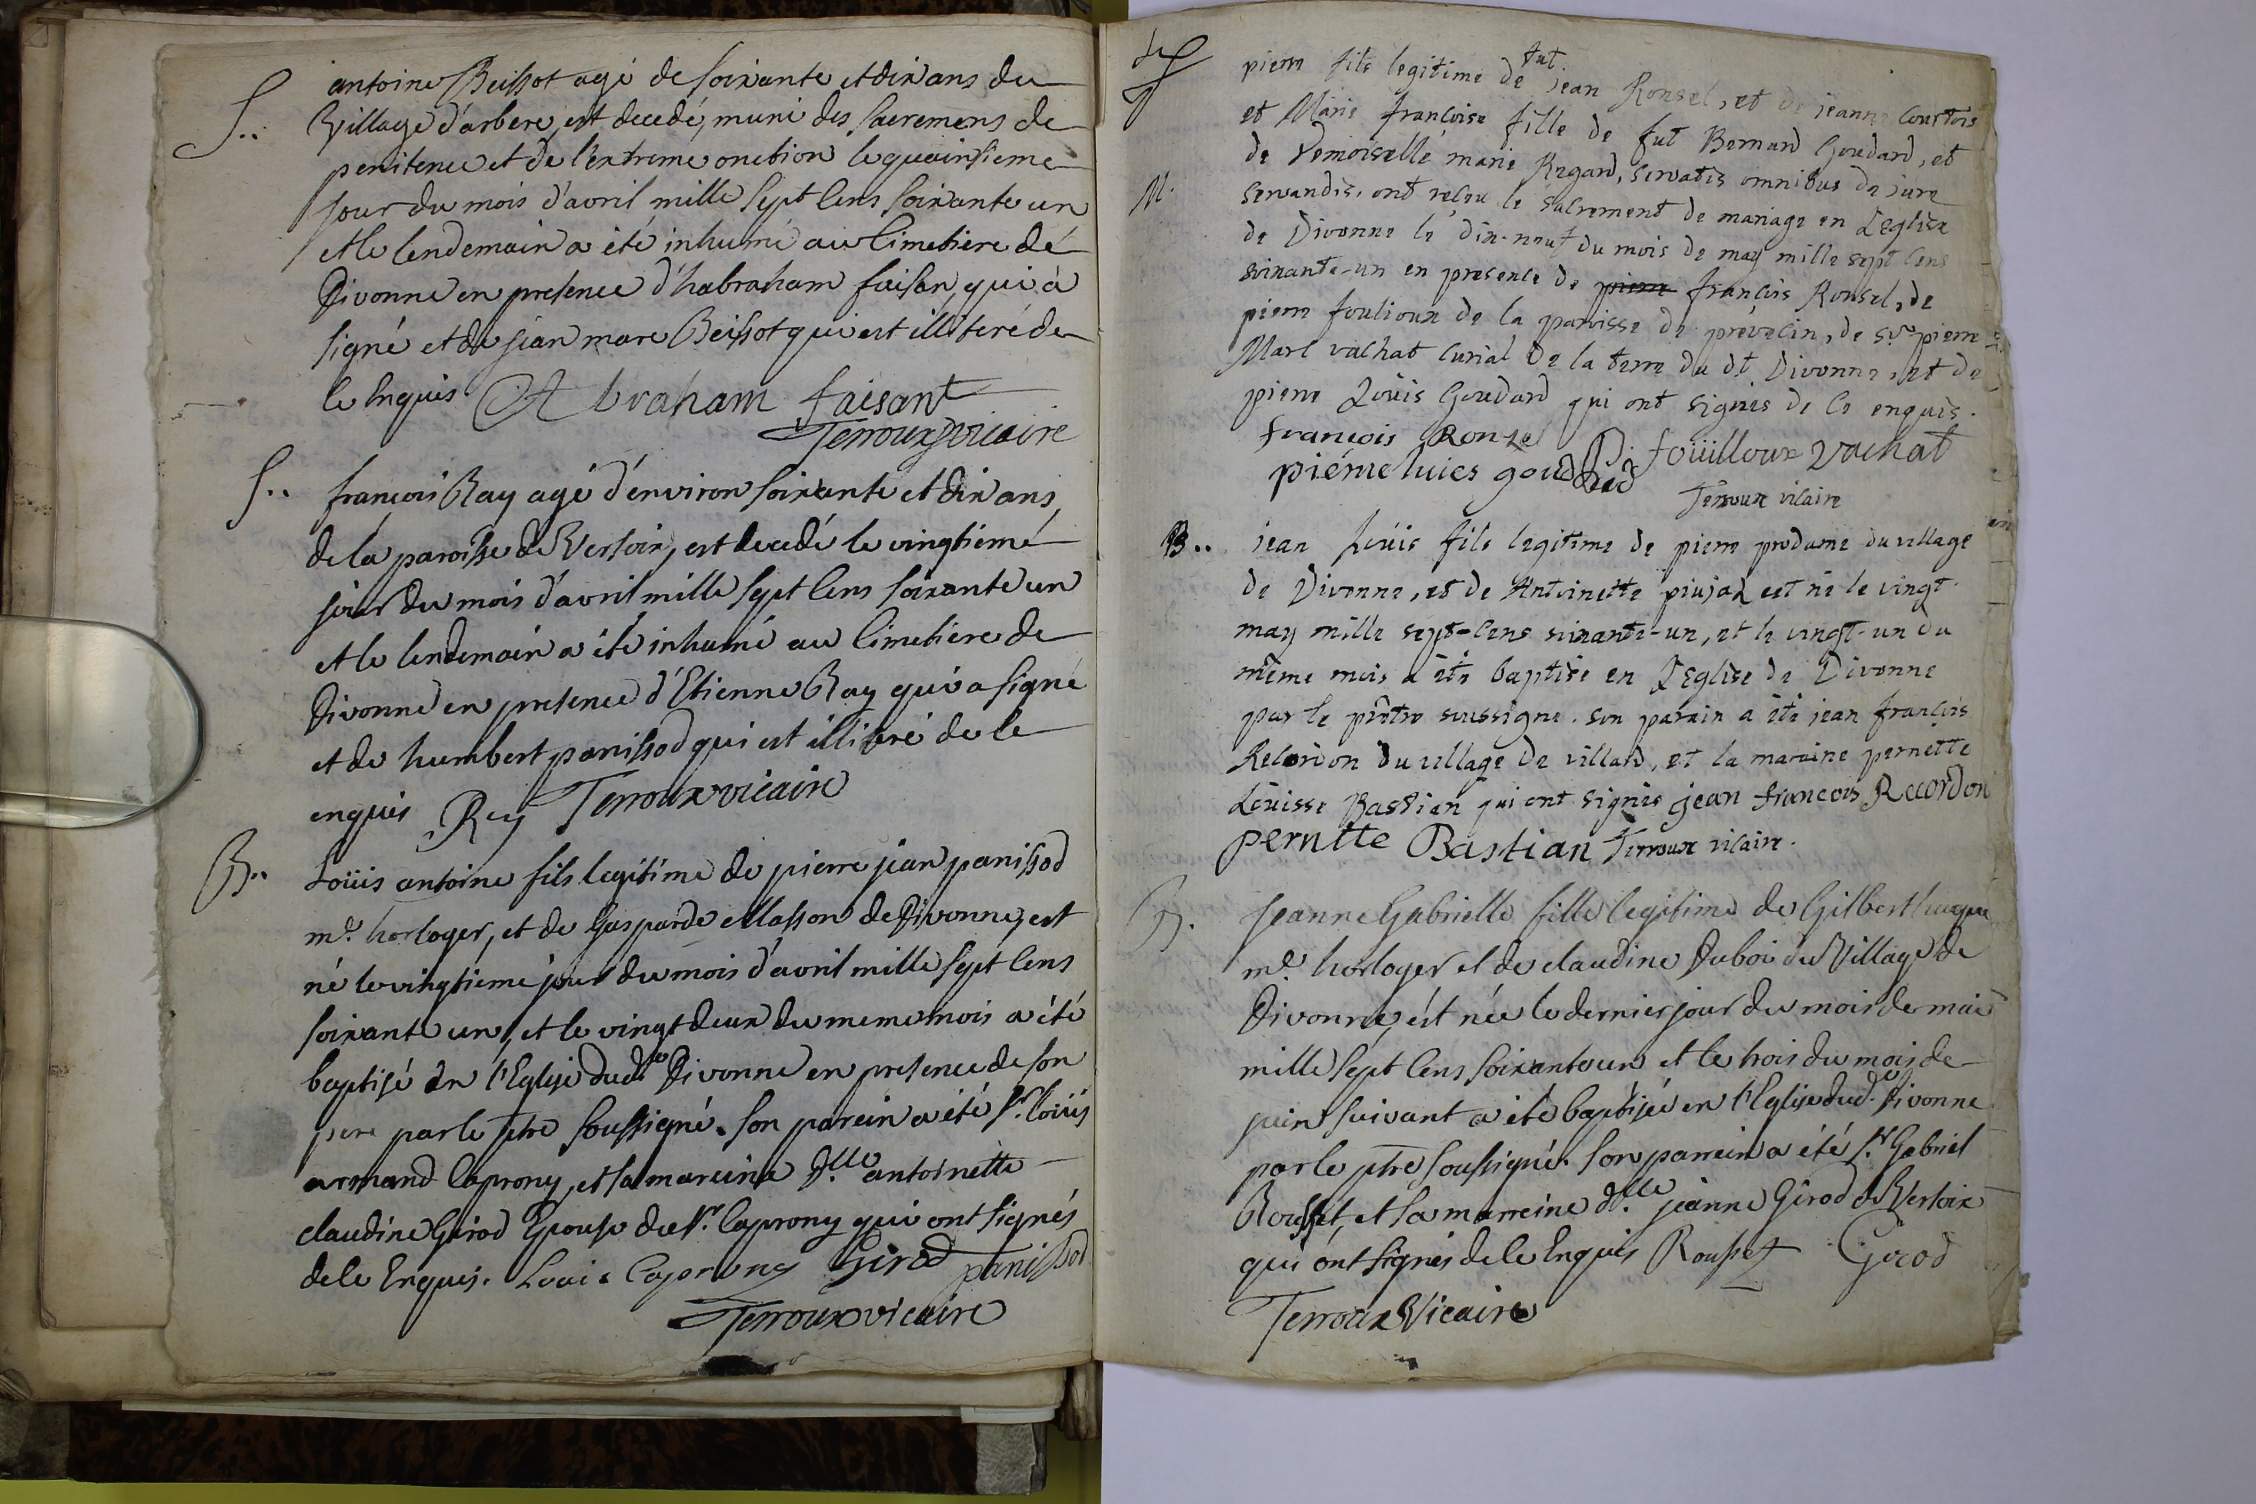 S.. antoine Beissot agé de soixante et dix ans du
Village d'arbere, est decedé, muni des sacremens de
penitence et de l'extreme onction le quainsieme
jour du mois d'avril mille sept cens soixante un
et le lendemain a été inhumé au Cimetiere dé
Divonne en presence d'habraham faisan, qui à
signé et de jean marc Beissot qui est illiteré de
ce Enquis Abraham faisant
Terroux vicaire
S.. francois Ray agé d'environ soixante et dix ans
de la paroisse de Versoix, est decedé le vingtiemé
jour du mois d'avril mille sept cens soixante un
et le lendemain a été inhumé au Cimetiere de
Divonne en presence d'Etienne Ray qui a signé
et de humbert panissod qui est illiteré de ce
enquis Rey Terroux vicaire
B.. Loüis antoine fils legitime de pierre jean panissod
me. horloger, et de Gasparde Masson de Divonne, est
né le vingtieme jour du mois d'avril mille sept cens
soixante un, et le vingt deux du meme mois a été
baptisé en l'Eglise dudt Divonne en presence de son
pere par le ptre soussigné. son parein a été sr. Loüis
armand Caprony, et sa mareine dlle. antoinette
claudine Girod Epouse du sr. Caprony qui ont signés
de ce Enquis. Louis Caprony Girod panissod
Terroux vicaire
pierre fils legitime de fut jean Ronsel, et de jeanne Courtois
et Marie françoise fille de fut Bernard Goudard, et
de Demoiselle marie Regard, servatis omnibus de jure
M. servandis, ont receu le sacrement de mariage en L'Eglise
de Divonne le dix-neuf du mois de may mille sept cens
soixante-un en presence de pierre françois Ronsel, de
pierre foulioux de la paroisse de prévecin, de sr. pierre
Marc vachat Curial de la terre du dt Divonne, et de
pierre Loüis Goudard qui ont signés de ce enquis.
francois Ronzel P. foüilloux Vachat
piérre luies goudard Terroux vicaire
B.. jean Loüis fils legitime de pierre prodame du village
de Divonne, et de Antoinette piujoz est né le vingt
may mille sept-cens soixante-un, et le vingt-un du
même mois a été baptisé en L'Eglise de Divonne
par le prêtre soussigné. son parain a été jean françois
Recordon du village de villard, et la maraine pernette
Loüisse Bastian qui ont signés jean francois Recordon
pernette Bastian Terroux vicaire.
B. Jeanne Gabrielle fille legitime de Gilbert
me. horloger et de claudine Dubois du Village de
Divonne, ést née le dernier jour du mois de mai
mille sept cens soixante un et le trois du mois de
juin suivant a été baptisée en l'Eglise dudt. Divonne
par le ptre soussigné. son parrein a été sr. Gabriel
Rousset, et sa marreine dlle. jeanne Girod de Versoix
qui ónt signés de ce Enquis Rousset Girod
Terroux Vicaire